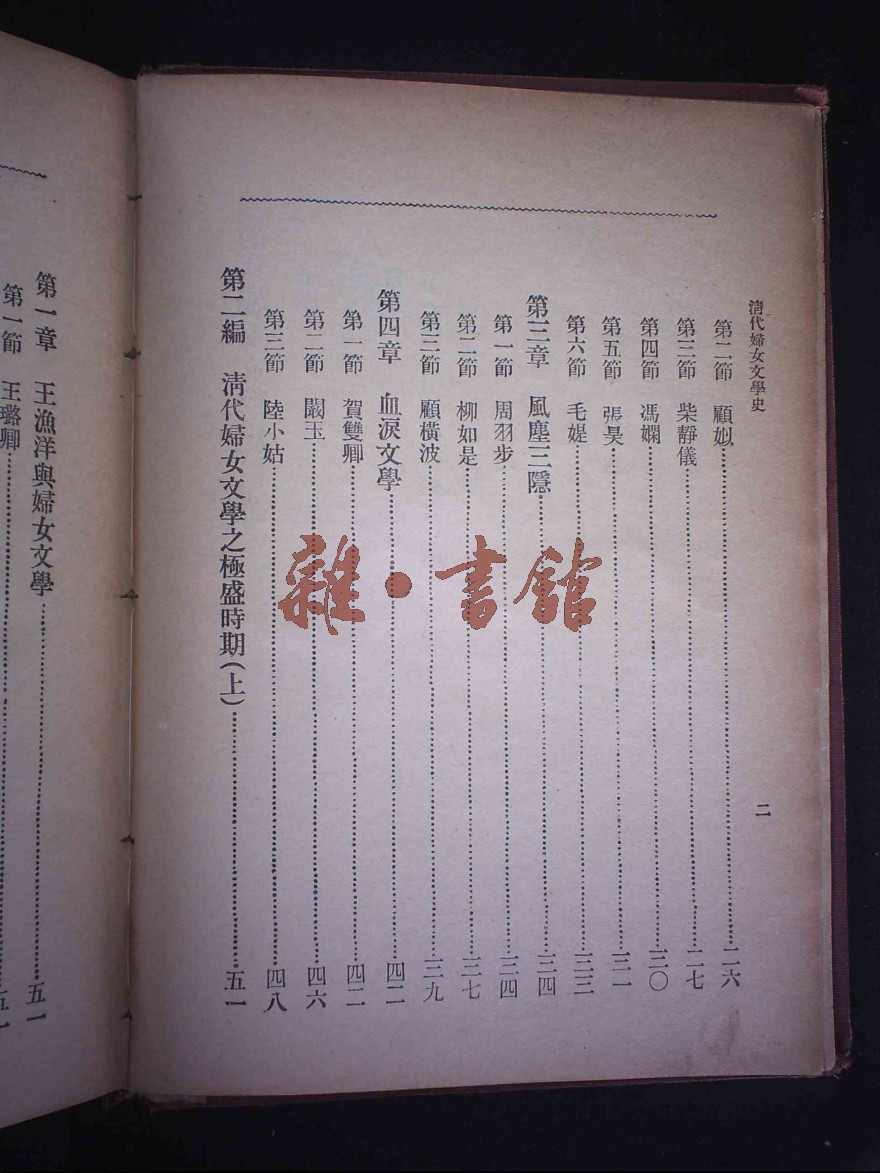 清代婦女文學史
二
第二節 顧姒 二六
第三節 柴靜儀 二七
第四節 馮嫻 三〇
第五節 張昊 三一
第六節 毛媞 三三
第三章 風塵三隱 三四
第一節 周羽步 三四
第二節 柳如是 三七
第三節 顧橫波 三九
第四章 血淚文學 四二
第一節 賀雙卿 四二
第二節 闞玉 四六
第三節 陸小姑 四八
第二編 清代婦女文學之極盛時期(上) 五一
第一章 王漁洋與婦女文學 五一
第一節 王璐卿 五一
雜·書館